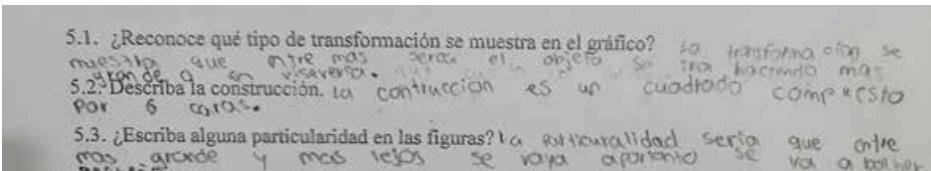 5.1. ¿Reconoce qué tipo de transformación se muestra en el gráfico? La transformación se
muestra que entre mas cerca el objeto se ira haciendo mas
grande o en viseversa.
5.2. Describa la construcción. La contrucción es un cuadrado compuesto
por 6 caras.
5.3. ¿Escriba alguna particularidad en las figuras? La particuralidad sería que entre
mas grande y mas lejos se vaya apartando se va a